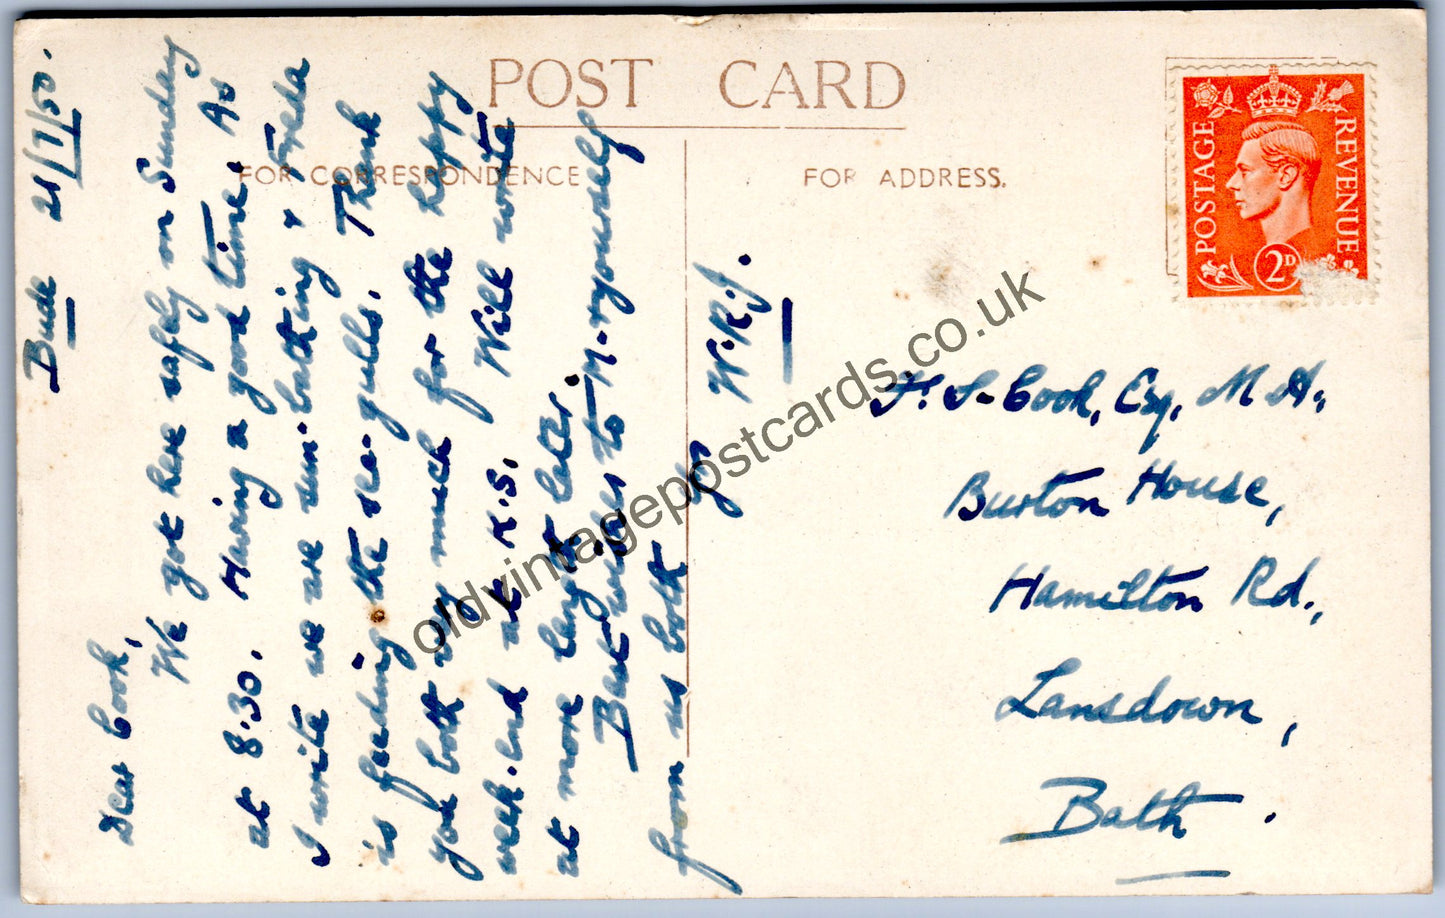 POST CARD
FOR CORRESPONDENCE
FOR ADDRESS.
Bude 21/7/50.
Dear Cook,
We got here safely on Sunday
at 8.30. Having a good time. As
I write we are sun-bathing & Freda
is feeding the sea-gulls. Thank
you both very much for the happy
week-end at K.S. Will write
at more length later.
Best wishes to M. & yourself
from us both
W.R.J.
F. S. Cook, Esq, M.A.,
Burton House,
Hamilton Rd.,
Lansdown,
Bath.
POSTAGE
REVENUE
2D
oldvintagepostcards.co.uk